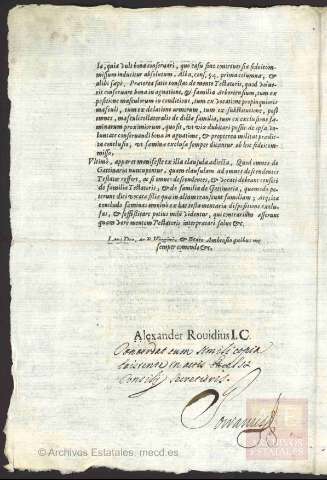 la, quia vult bona conservari, quo casu sine cõtrovexu fideicom-
missum inducitur absolutum. Alba, cons. 54. prima columna, &
alibi sæpe. Præterea satis constat de mente Testatoris, quod volue-
rit conservare bona in agnatione, & familia Arboriensium, tum ex
positione masculorum in conditione, tum ex vocatione propinquioris
masculi, tum ex delatione armorum, tum ex substitutione, post
omnes, masculi collateralis de dicta familia, tum ex exclusione fæ-
minarum proximiorum, quasi, vt via dubitari possit de eius volun-
tate conservandi bona in agnatione, & propterea militat prædicta
conclusio, vt fæmina exclusa semper dicatur ab hoc fideicom-
misso.
Vltimò, apparet manifestè ex illa clausula adiecta, Quod omnes de
Gattinaria nuncupentur, quam clausulam ad omnes descendentes
Testator refert, ac si omnes descendentes, & vocati debeant censeri
de familia Testatoris, & de familia de Gattinaria, quomodo po-
terunt dici vocatæ filiæ quæ in aliam transeunt familiam; Atque
concludo fæminas omnino ex hac testamentaria dispositione exclu-
sas, & sophisticare potius mihi videntur, qui contrarium asserunt
quam verè mentem Testatoris interpretari salus &c.
Laus Deo, ac B. Virgini, & Beato Ambrosio quibus me
semper commendo &c.
Alexander Rovidius I.C.
Concordat cum simili copia
existente in actis
Consilij Secretioris.
ARCHIVOS
ESTATALES
© Archivos Estatales, mecd.es